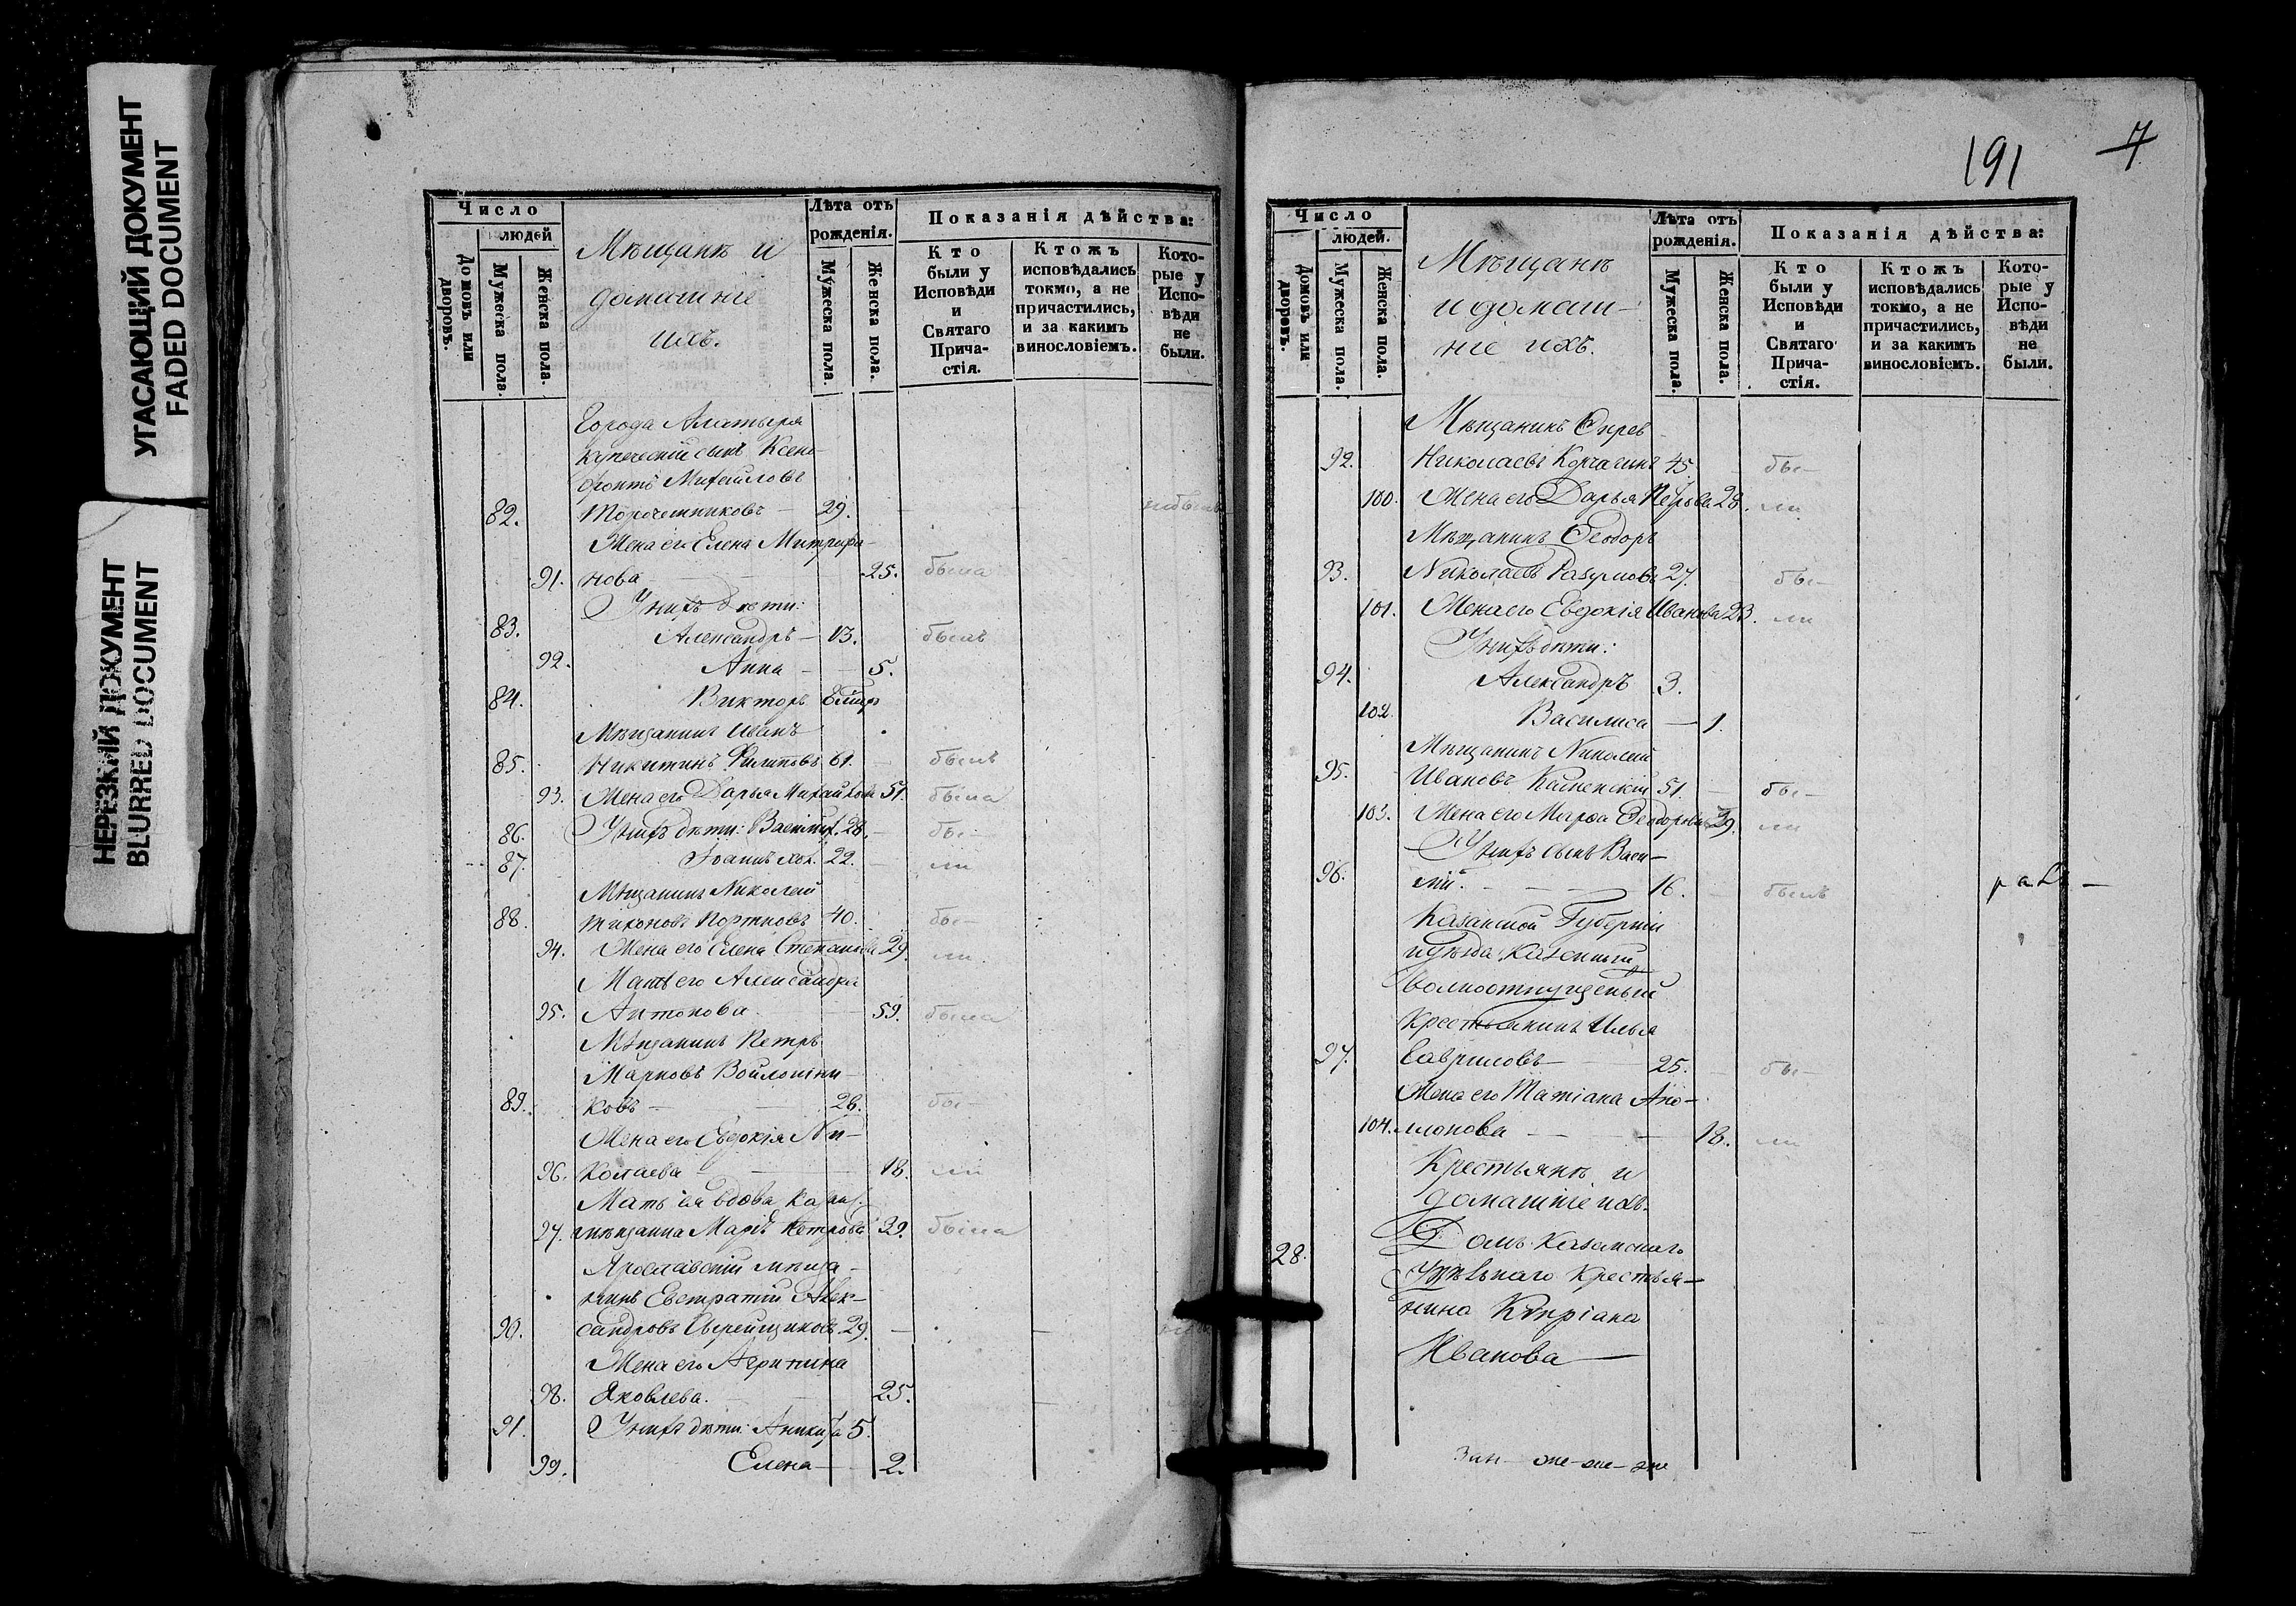 УГАСАЮЩИЙ ДОКУМЕНТ
FADED DOCUMENT
НЕРЕЗКИЙ ДОКУМЕНТ
BLURRED DOCUMENT
Число
людей
Домовъ или дворовъ.
Мужеска пола.
Женска пола.
Мѣщанъ и
домашніе
ихъ.
Лѣта отъ
рожденія.
Мужеска пола.
Женска пола.
Показанія дѣйства:
Кто
были у
Исповѣди
и
Святаго
Прича-
стія.
Ктожъ
исповѣдались
токмо, а не
причастились,
и за какимъ
винословіемъ.
Кото-
рые у
Испо-
вѣди
не
были.
Города Алатыря
купеческій сынъ Ксено-
фонтъ Михайловъ
82. 29.
Жена его Елена Митрофа-
91. нова 25. была
У нихъ дѣти:
83. Александръ — 13. былъ
92. Анна — 5.
84. Викторъ
Мѣщанинъ Иванъ
85. Никитинъ Филиповъ 61. былъ
93. Жена его Дарья Михайлова 51. была
86. У нихъ дѣти: 28. бы-
87. Іоаннъ хол. 22. ли
Мѣщанинъ Николай
88. Тихоновъ Портновъ 40. бы-
94. Жена его Елена Степанова 29. ли
Мать его Александра
95. Антонова. 59. была
Мѣщанинъ Петръ
Марковъ Войлошни-
89. ковъ — 26. бы-
Жена его Евдокія Ни-
96. колаева 18. ли
Мать ея вдова
97. мѣщанка Марія Петрова 39. была
Ярославскій мѣща-
нинъ Евстратій Алек-
90. сандровъ 29.
Жена его Агрипина
98. Яковлева. 25.
91. У нихъ дѣти: Аникита 5.
99. Елена — 2.
191 7
Число
людей.
Домовъ или дворовъ.
Мужеска пола.
Женска пола.
Мѣщанъ
и домаш-
ніе ихъ.
Лѣта отъ
рожденія.
Мужеска пола.
Женска пола.
Показанія дѣйства:
Кто
были у
Исповѣди
и
Святаго
Прича-
стія.
Ктожъ
исповѣдались
токмо, а не
причастились,
и за какимъ
винословіемъ.
Кото-
рые у
Испо-
вѣди
не
были.
Мѣщанинъ
92. Николаевъ Корчагинъ 45 бы-
100. Жена его Дарья Петрова 28. ли
Мѣщанинъ Ѳеодоръ
93. Николаевъ Разумовъ 27. бы-
101. Жена его Евдокія Иванова 23. ли
У нихъ дѣти:
94. Александръ 3.
102. Василиса — 1.
Мѣщанинъ Николай
95. Ивановъ 51. бы-
103. Жена его Марѳа Ѳеодорова 39. ли
У нихъ сынъ Васи-
96. лій. 16. былъ
Казанской Губерніи
и уѣзда,
вольноотпущеный
крестьянинъ Илья
97. Гавриловъ — 25. бы-
Жена его Татіана Апо-
104. лонова — 18. ли
Крестьянъ и
домашніе ихъ.
28. Домъ Казанскаго
Удѣльнаго крестья-
нина Кипріана
Иванова —